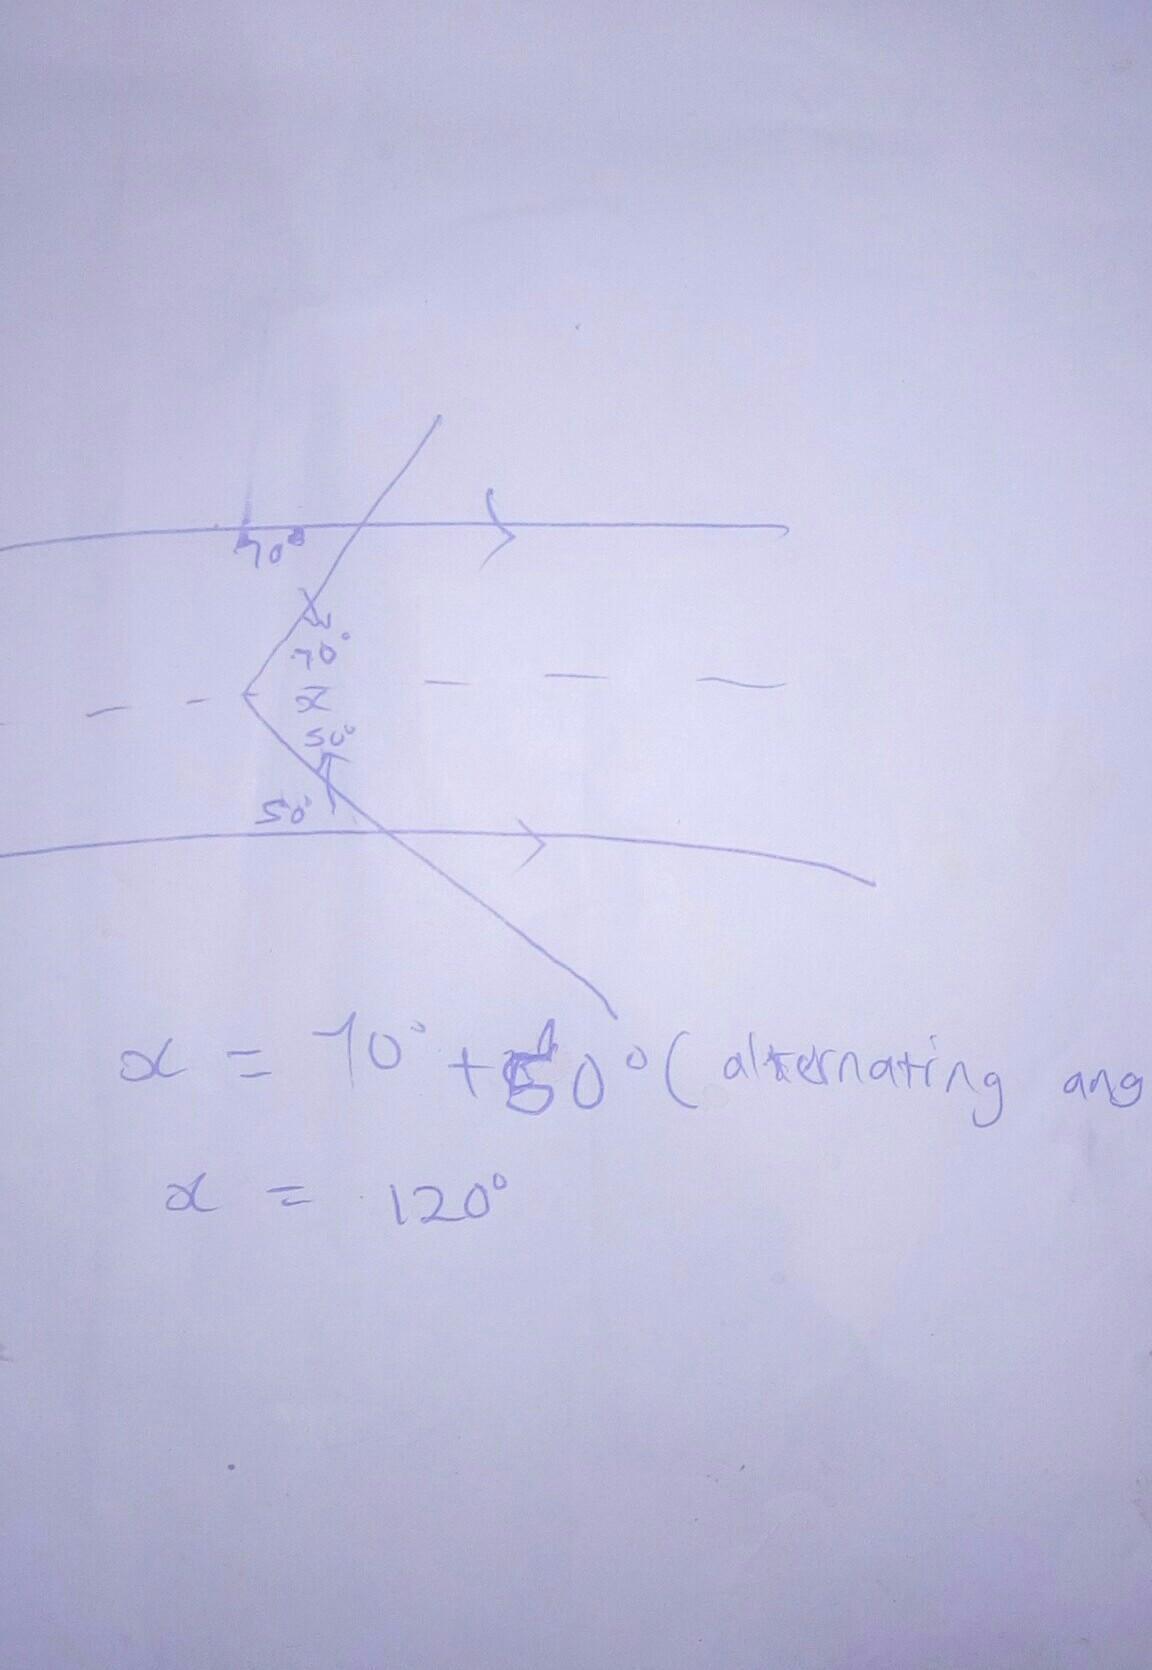 70°
70°
x
50°
50°
x = 70° + 50° ( alternating ang
x = 120°